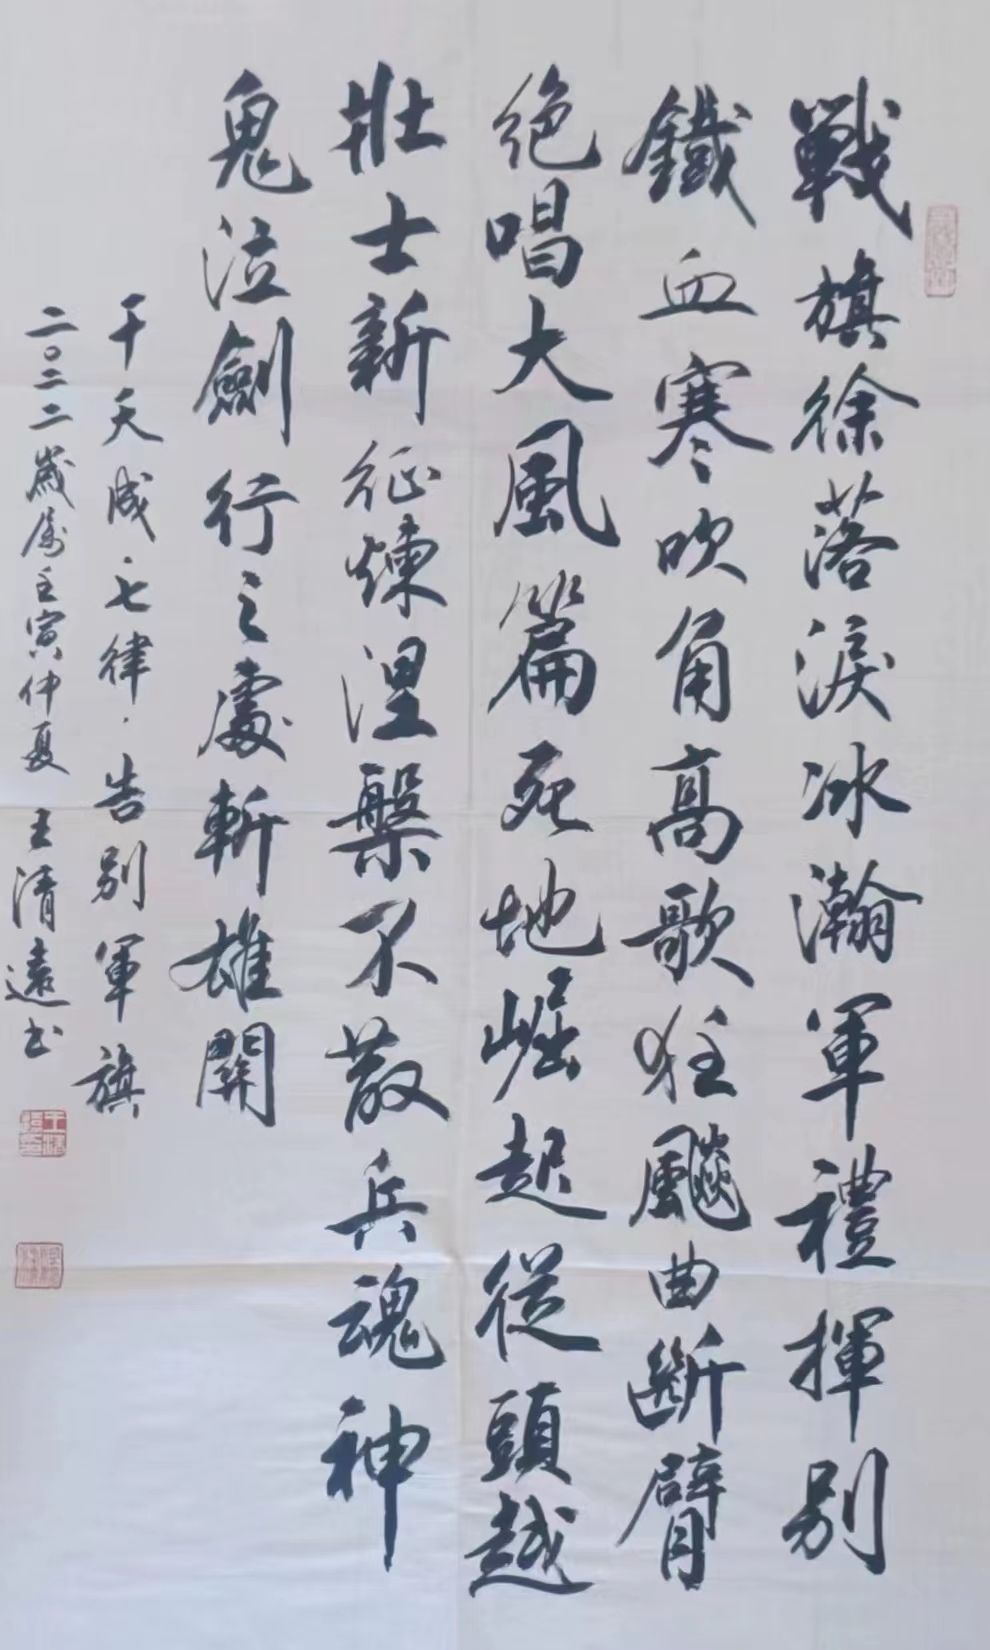 戰旗徐落淚冰瀚軍禮揮别
鐵血寒吹角高歌狂飈曲斷臂
绝唱大風篇死地崛起從頭越
壯士新征煉涅槃不散兵魂神
鬼泣劍行之處斬雄關
干天成·七律·告别軍旗
二〇二二歲属壬寅仲夏 王清遠书